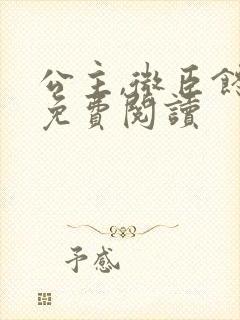 公主,微臣
免費閱讀
予感